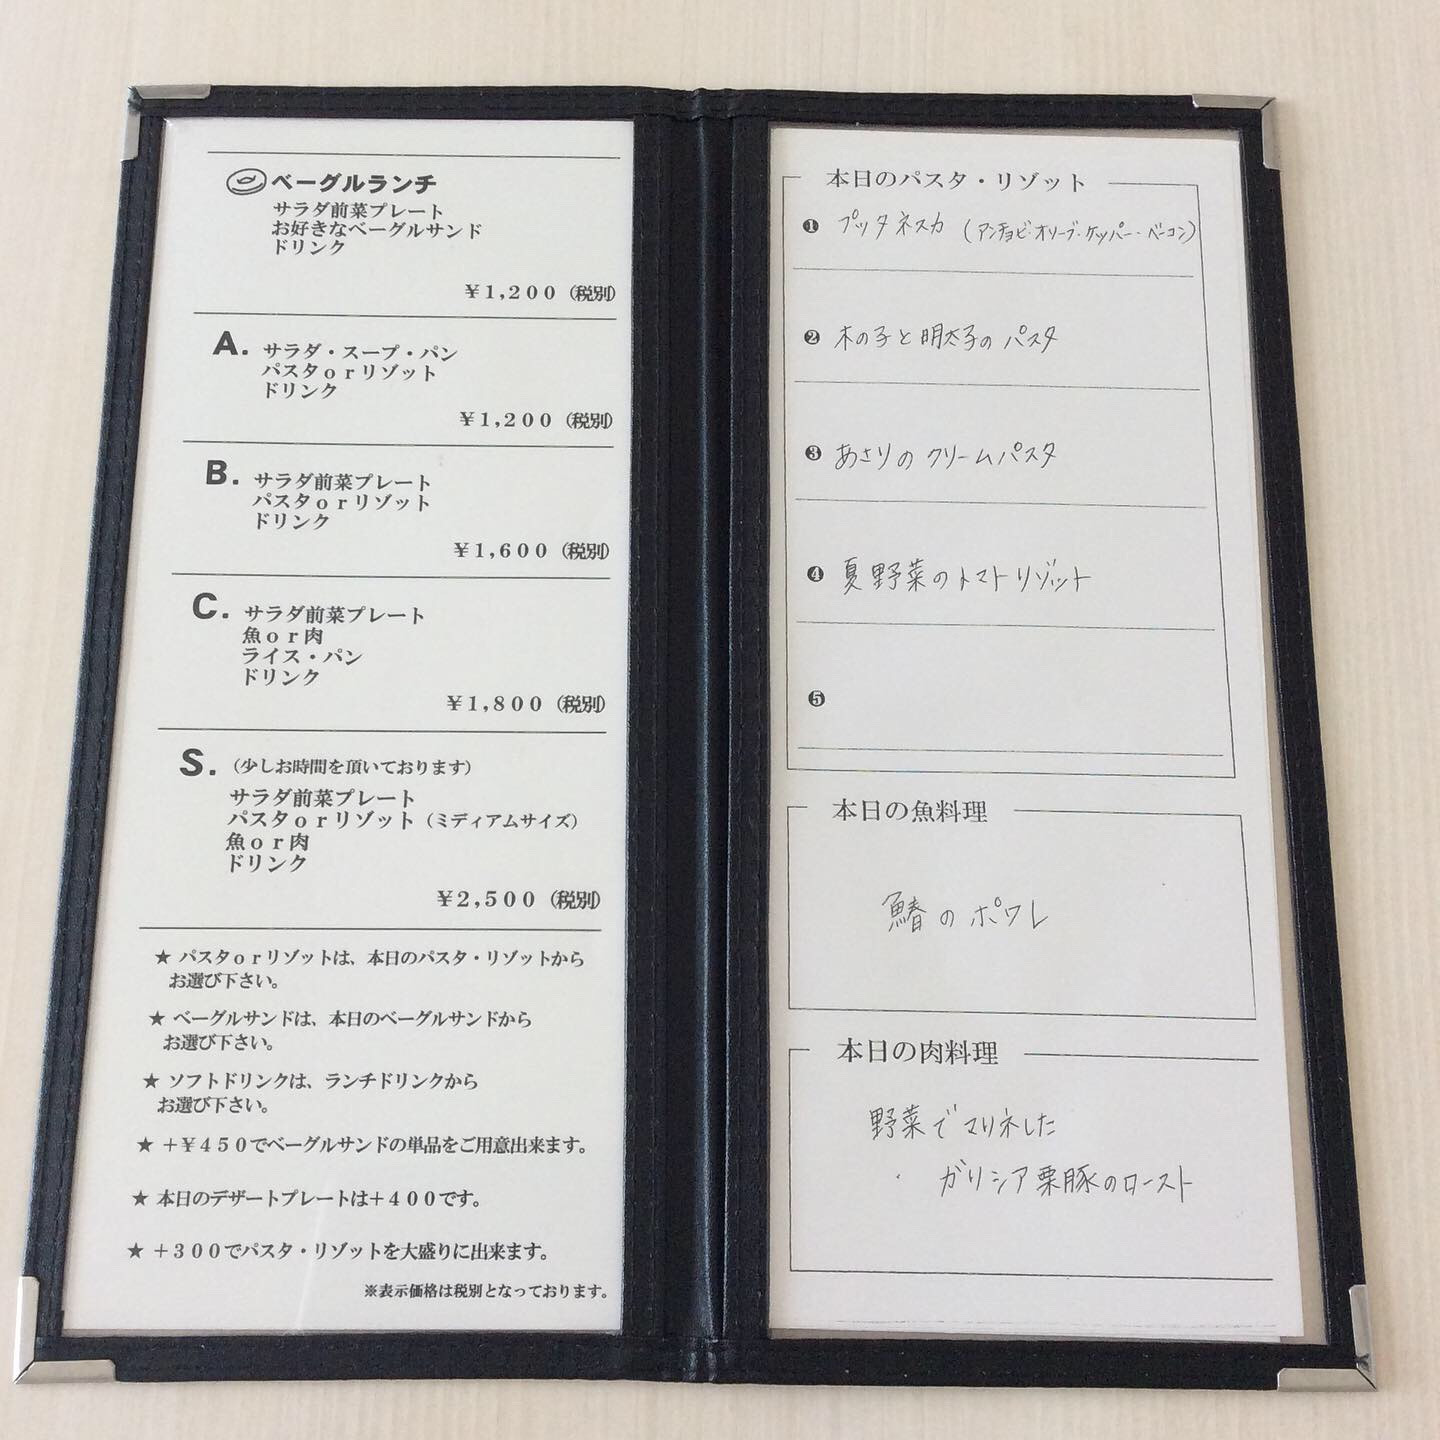 ベーグルランチ
サラダ前菜プレート
お好きなベーグルサンド
ドリンク
￥1,200（税別）
A. サラダ・スープ・パン
パスタｏｒリゾット
ドリンク
￥1,200（税別）
B. サラダ前菜プレート
パスタｏｒリゾット
ドリンク
￥1,600（税別）
C. サラダ前菜プレート
魚ｏｒ肉
ライス・パン
ドリンク
￥1,800（税別）
S.（少しお時間を頂いております）
サラダ前菜プレート
パスタｏｒリゾット（ミディアムサイズ）
魚ｏｒ肉
ドリンク
￥2,500（税別）
★ パスタｏｒリゾットは、本日のパスタ・リゾットから
お選び下さい。
★ ベーグルサンドは、本日のベーグルサンドから
お選び下さい。
★ ソフトドリンクは、ランチドリンクから
お選び下さい。
★ ＋￥４５０でベーグルサンドの単品をご用意出来ます。
★ 本日のデザートプレートは＋４００です。
★ ＋３００でパスタ・リゾットを大盛りに出来ます。
※表示価格は税別となっております。
本日のパスタ・リゾット
❶ プッタネスカ（アンチョビ・オリーブ・ケッパー・ベーコン）
❷ 木の子と明太子のパスタ
❸ あさりのクリームパスタ
❹ 夏野菜のトマトリゾット
❺
本日の魚料理
鰆のポワレ
本日の肉料理
野菜でマリネした
ガリシア栗豚のロースト